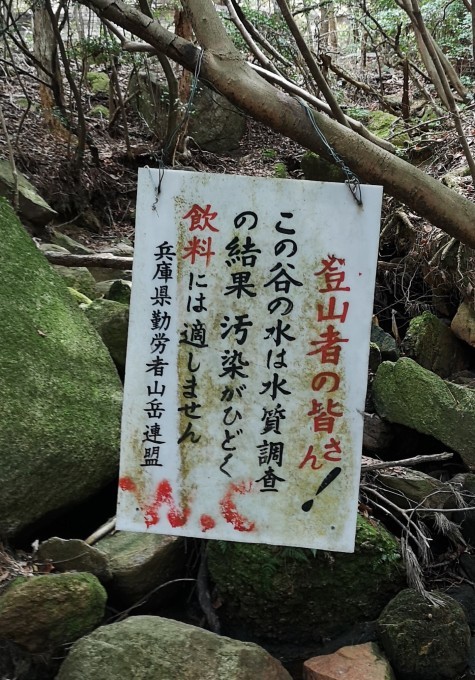 登山者の皆さん!
この谷の水は水質調査
の結果 汚染がひどく
飲料には適しません
兵庫県勤労者山岳連盟
W.C